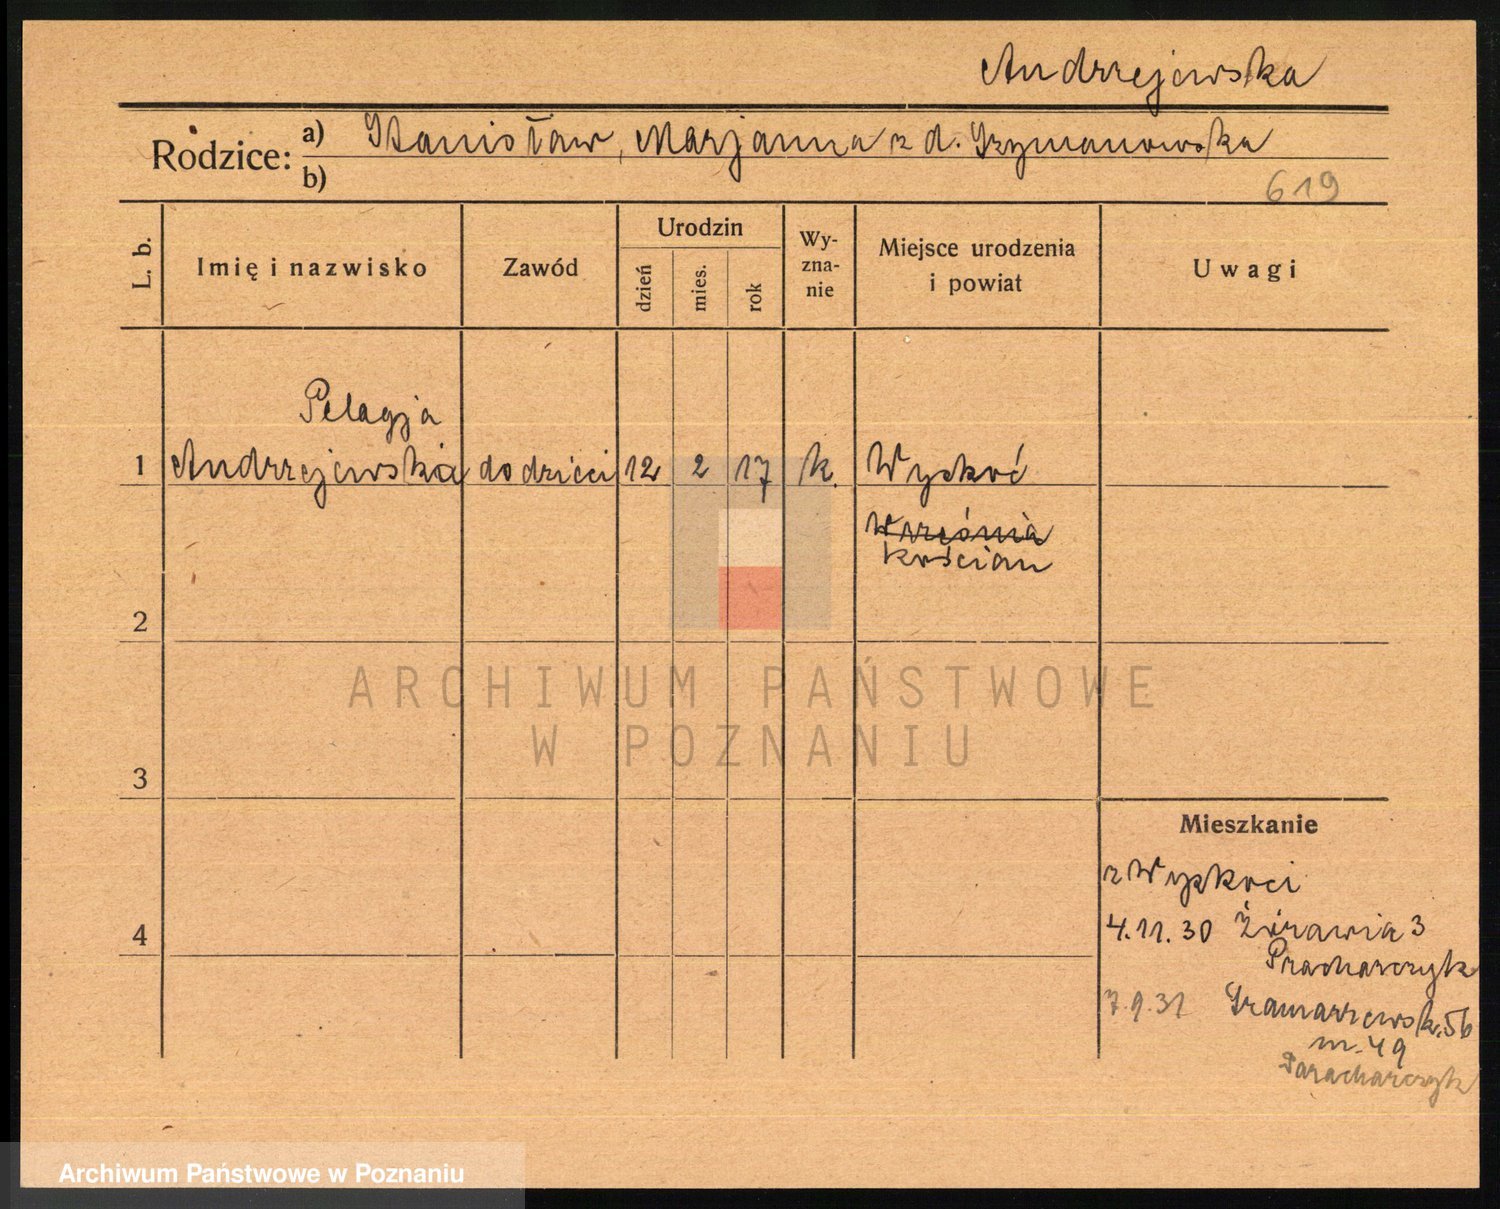 Andrzejewska
Rodzice: a) Stanisław, Marjanna z d. Szymanowska
b)
619
L. b.
Imię i nazwisko
Zawód
Urodzin
dzień
mies.
rok
Wy-
zna-
nie
Miejsce urodzenia
i powiat
Uwagi
Pelagja
1 Andrzejewska do dzieci 12 2 17 k. Wyskoć
Września
Kościan
2
ARCHIWUM PAŃSTWOWE
W POZNANIU
3
Mieszkanie
z Wyskoci
4
4.11.30 Żórawia 3
7.9.31
m. 49
Archiwum Państwowe w Poznaniu